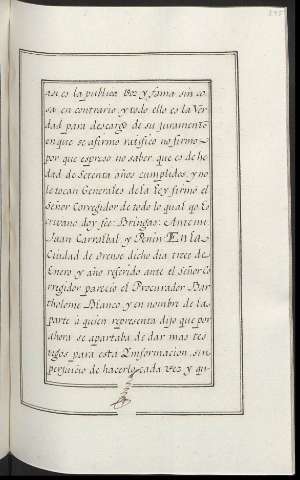 así es la publica voz y fama sin co
sa en contrario y todo ello es la Ver
dad para descargo de su juramento
en que se afirmo ratifico no firmo
por que espreso no saber que es de he
dad de Setenta años cumplidos y no
le tocan Generales de la ley firmó el
Señor Corregidor de todo lo qual yo Es
crivano doy fee: Bringas: Antemi
Juan Carralbal y Penin En la
Ciudad de Orense dicho dia trece de
Enero y año referido ante el Señor Co
rregidor pareció el Procurador Bar
tholome Blanco y en nombre de la
parte à quien representa dijo que por
ahora se apartaba de dar mas tes
tigos para esta Ynformacion sin
perjuicio de hacerlo cada vez y qu